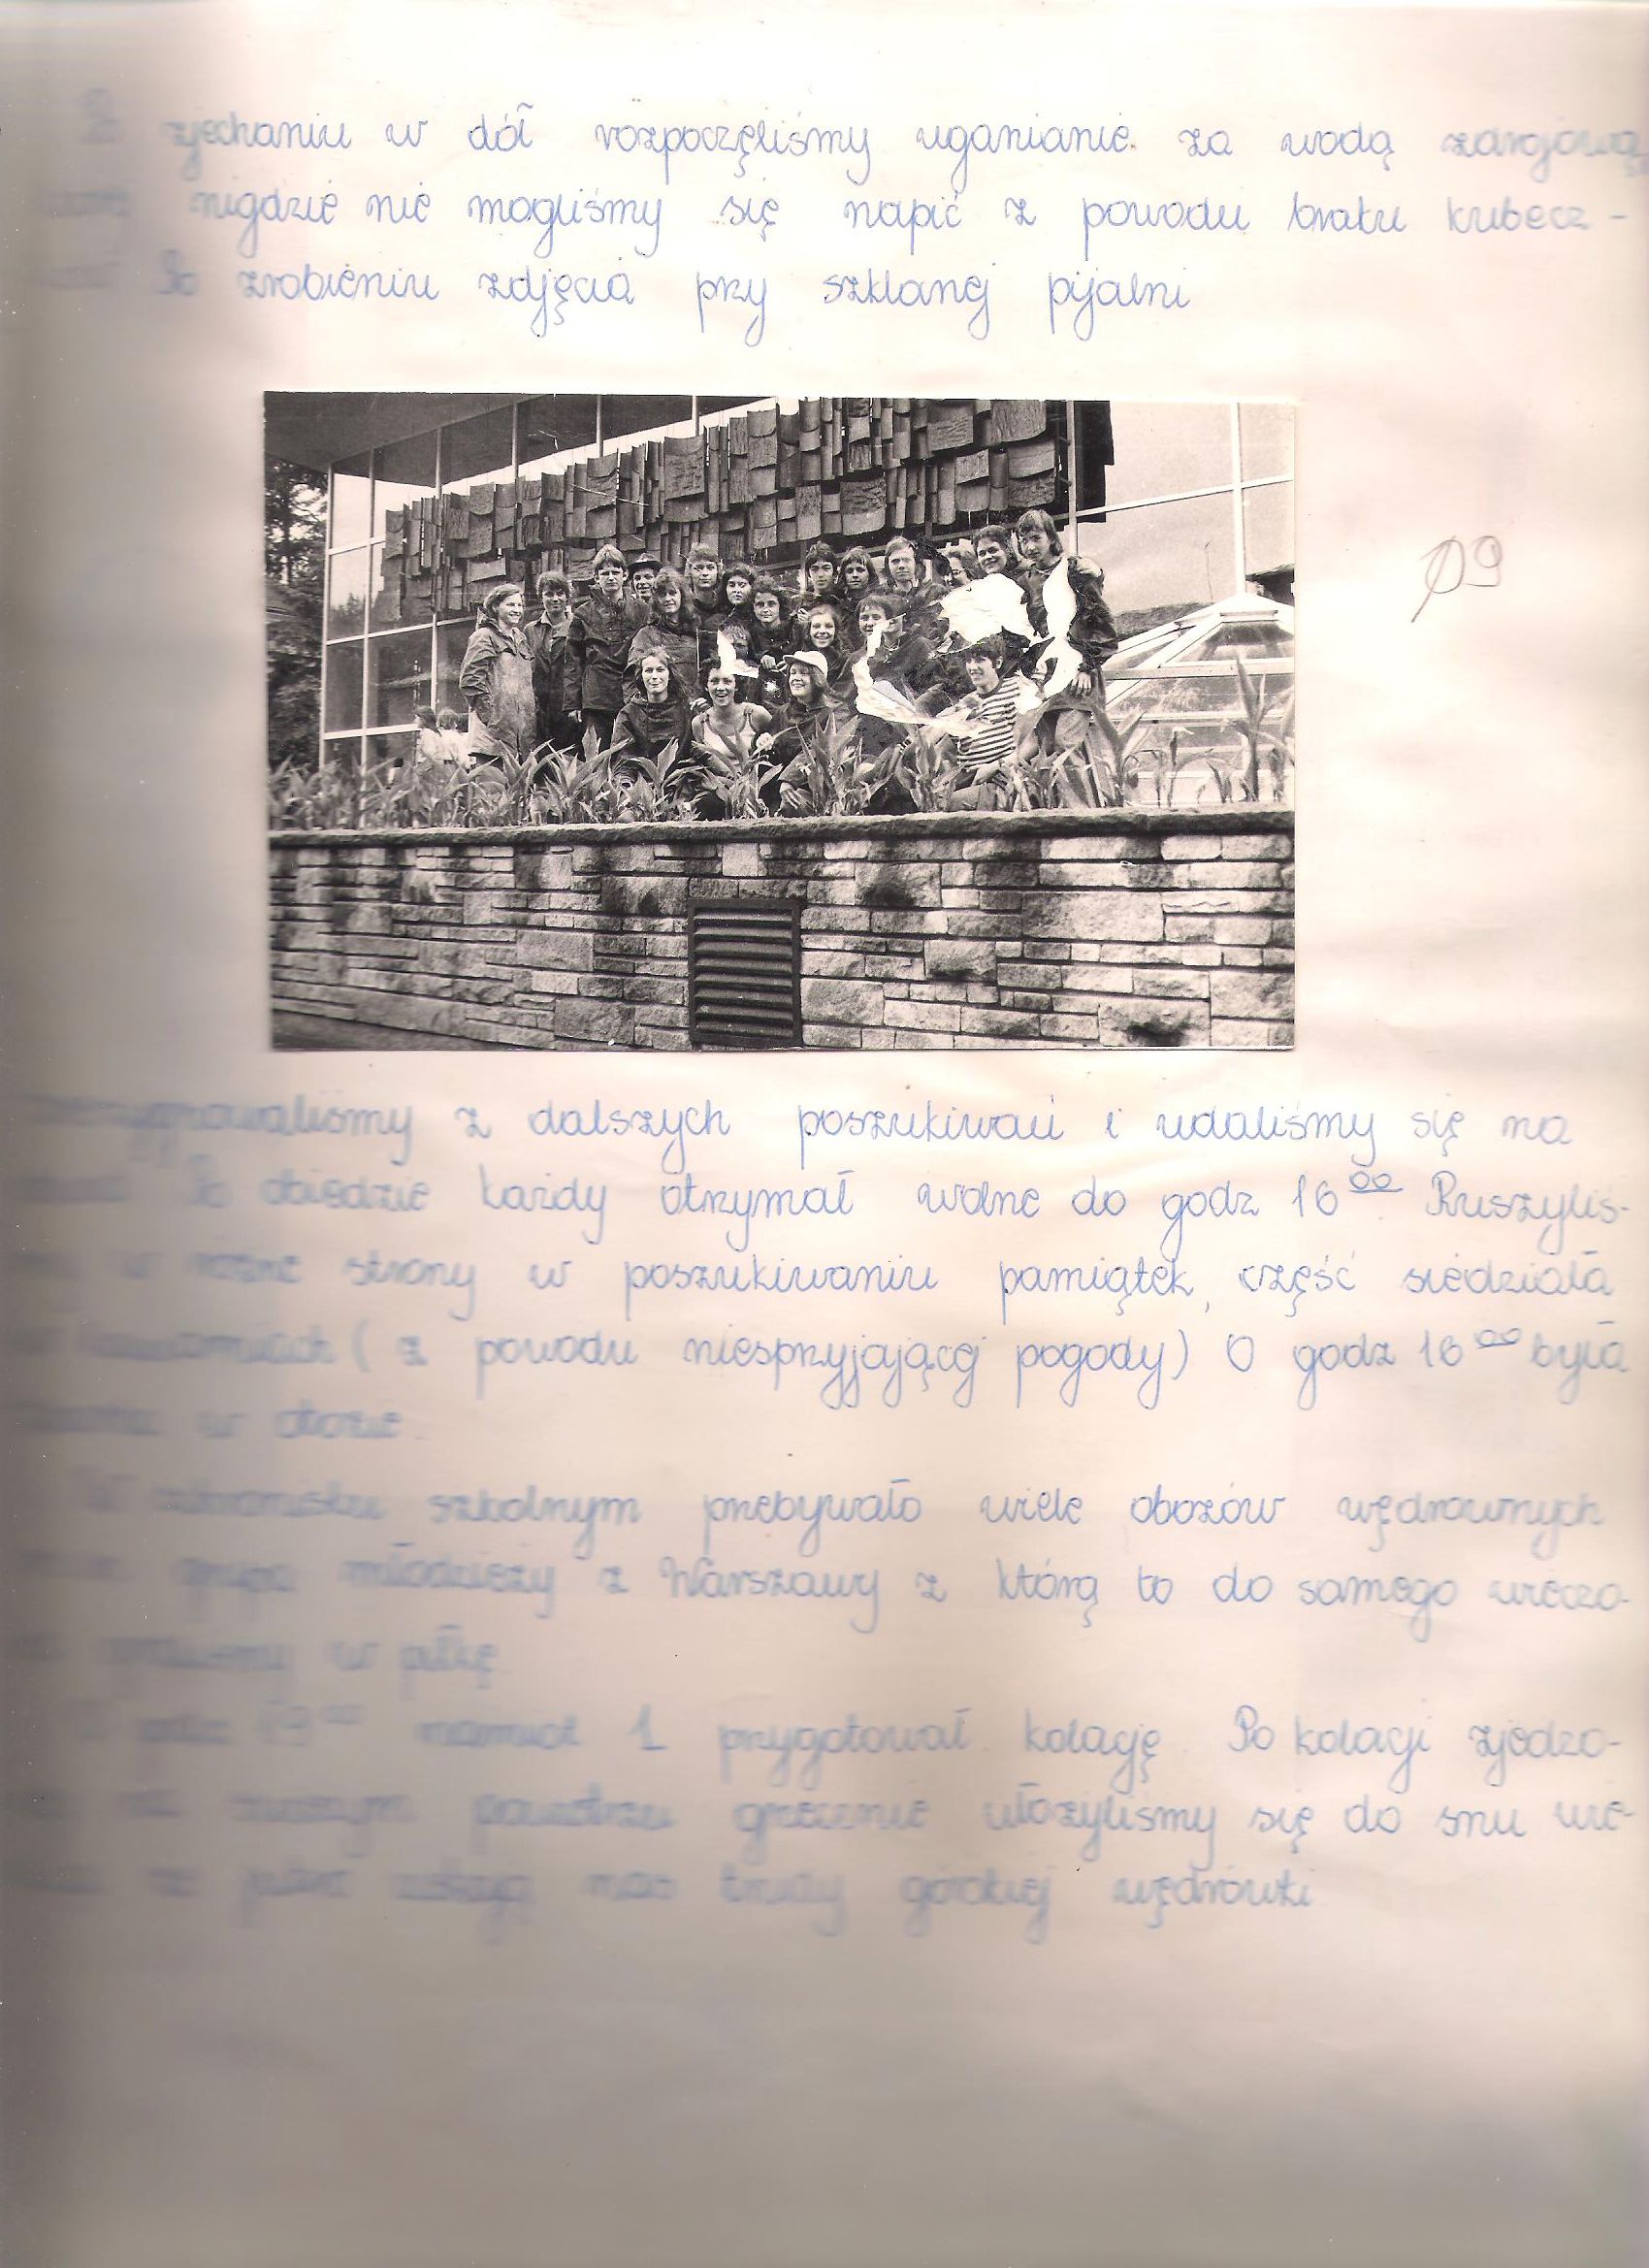 zjechaniu w dół rozpoczęliśmy uganianie za wodą zdrojową
nigdzie nie mogliśmy się napić z powodu braku kubecz-
Po zrobieniu zdjęcia przy szklanej pijalni
09
z dalszych poszukiwań i udaliśmy się na
Po obiedzie każdy otrzymał wolne do godz 16 00 Ruszyliś-
w różne strony w poszukiwaniu pamiątek, część siedziała
(z powodu niesprzyjającej pogody) O godz 16 00 była
w obozie.
W schronisku szkolnym przebywało wiele obozów wędrownych
grupa młodzieży z Warszawy z którą to do samego wieczo-
graliśmy w piłkę
19 00 namiot 1 przygotował kolację. Po kolacji zjedzo-
na świeżym powietrzu grzecznie ułożyliśmy się do snu wie-
nas trudy górskiej wędrówki